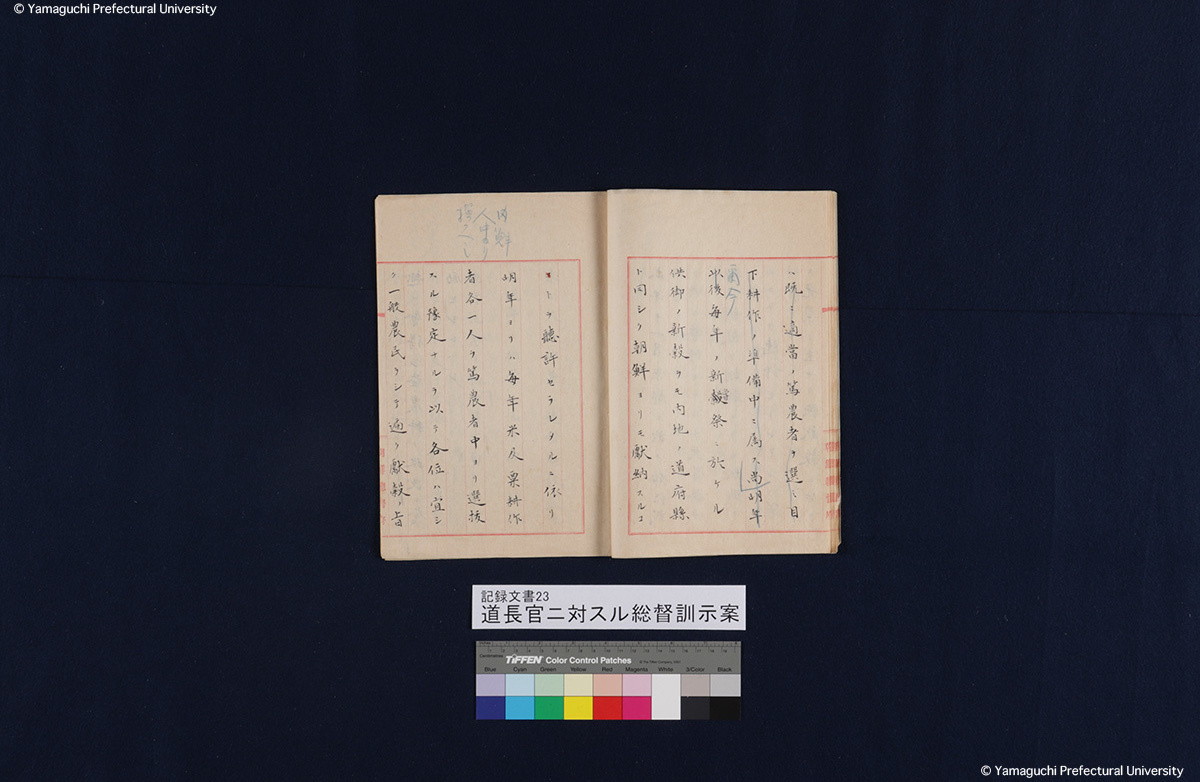 © Yamaguchi Prefectural University
ハ既ニ適當ノ篤農者ヲ選ミ目
下耕作ノ準備中ニ属ス尚明年
爾今
以後毎年ノ新穀祭ニ於ケル
供御ノ新穀ヲモ内地ノ道府縣
ト同シク朝鮮ヨリモ獻納スルコ
内鮮
人ヨリ
選ヘシ
トヲ聽許セラレタルニ依リ
明年ヨリハ毎年米及粟耕作
者各一人ヲ篤農者中ヨリ選抜
スル豫定ナルヲ以テ各位ハ宜シ
ク一般農民ヲシテ遍ク獻穀ノ旨
記録文書23
道長官ニ対スル総督訓示案
Centimetres
TIFFEN Color Control Patches
© The Tiffen Company, 2007
Blue Cyan Green Yellow Red Magenta White 3/Color Black
© Yamaguchi Prefectural University